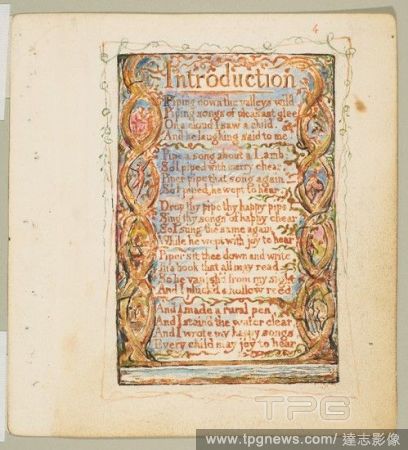 4
Introduction
Piping down the valleys wild
Piping songs of pleasant glee
On a cloud I saw a child.
And he laughing said to me.
Pipe a song about a Lamb:
So I piped with merry chear,
Piper pipe that song again
So I piped, he wept to hear.
Drop thy pipe thy happy pipe
Sing thy songs of happy chear
So I sung the same again
While he wept with joy to hear
Piper sit thee down and write
In a book that all may read
So he vanish'd from my sight
And I pluck'd a hollow reed
And I made a rural pen,
And I stain'd the water clear,
And I wrote my happy songs
Every child may joy to hear
TPG
www.tpgnews.com / 達志影像